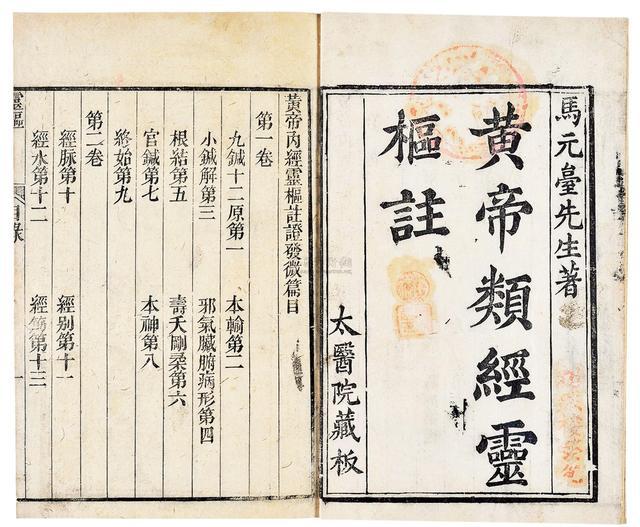 馬元臺先生著
黃帝類經靈
樞註
太醫院藏板
黃帝內經靈樞註證發微篇目
第一卷
九鍼十二原第一　本輸第二
小鍼解第三　邪氣臟腑病形第四
根結第五　壽夭剛柔第六
官鍼第七　本神第八
終始第九
第二卷
經脉第十　經別第十一
經水第十二　經筋第十三
靈樞　目錄